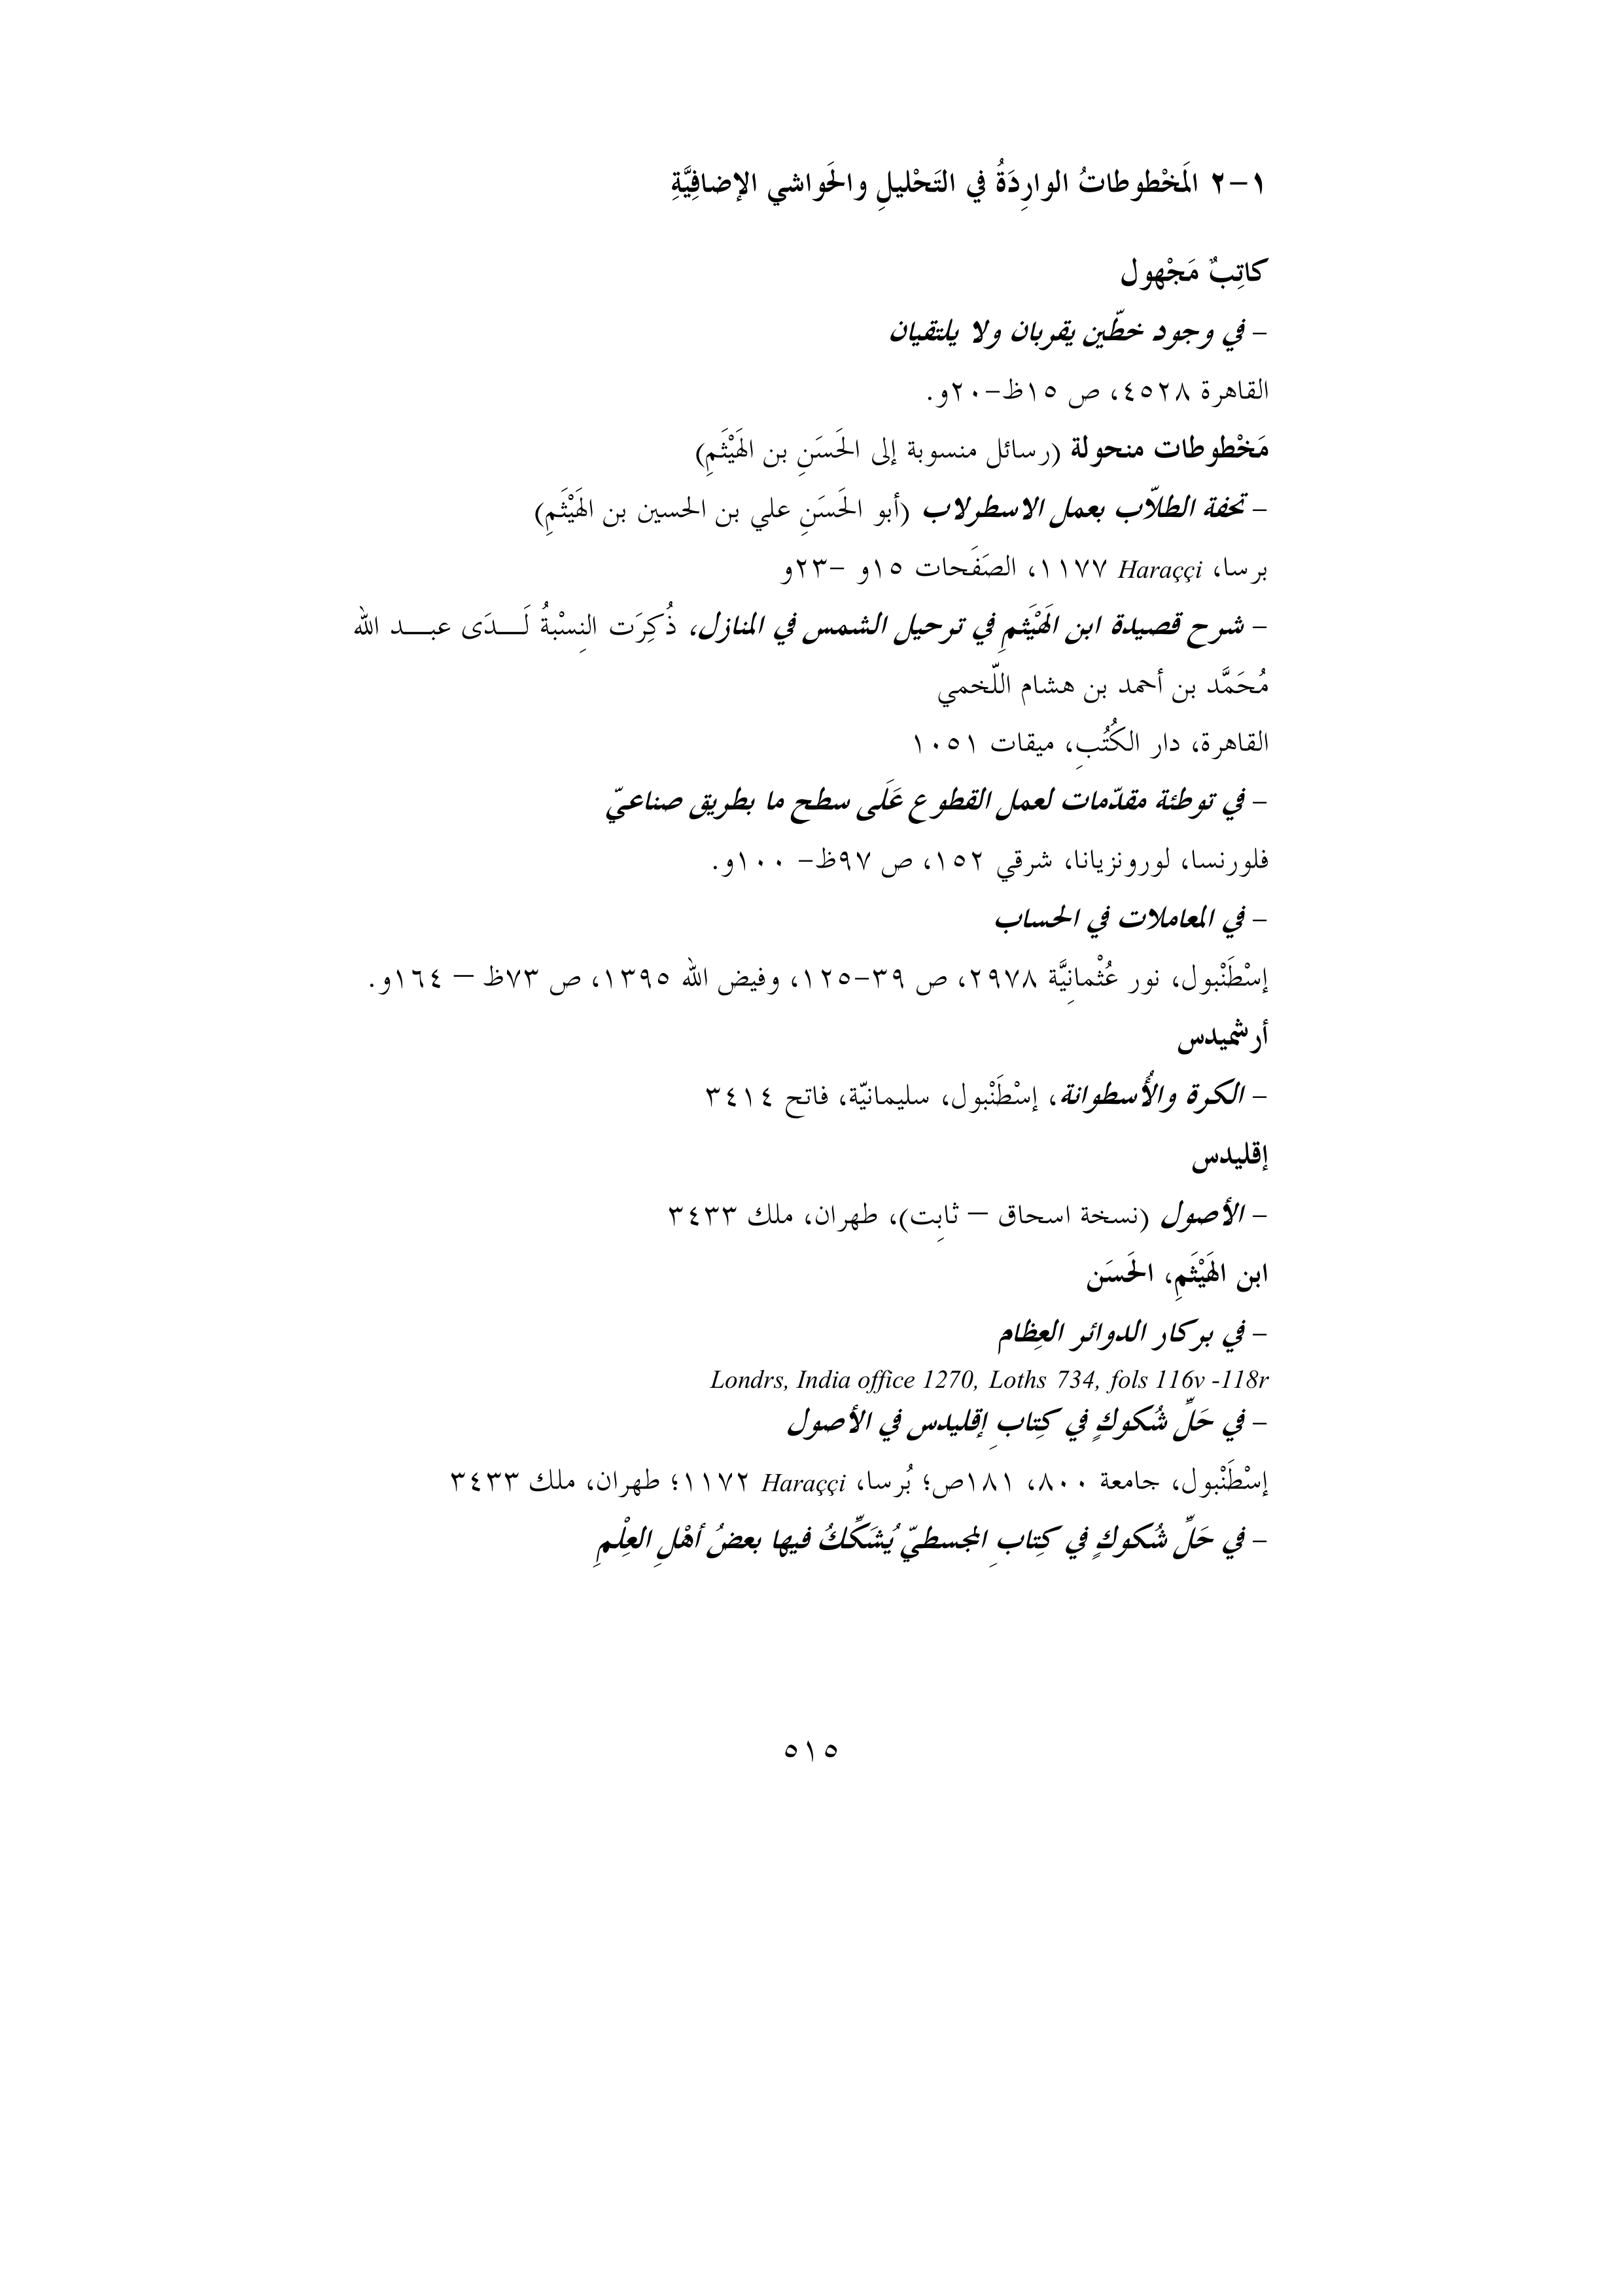 ١-٢ المَخْطوطاتُ الوارِدَةُ في التَحْليلِ والحَواشي الإضافِيَّةِ
كاتِبٌ مَجْهول
- في وجود خطّين يقربان ولا يلتقيان
القاهرة ٤٥٢٨، ص ١٥ظ-٢٠و.
مَخْطوطات منحولة (رسائل منسوبة إلى الحَسَنِ بن الهَيْثَمِ)
- تحفة الطلاّب بعمل الاسطرلاب (أبو الحَسَنِ علي بن الحسين بن الهَيْثَمِ)
برسا، Haraççi ١١٧٧، الصَفَحات ١٥و -٢٣و
- شرح قصيدة ابن الهَيْثَمِ في ترحيل الشمس في المنازل، ذُكِرَت النِسْبةُ لَـــدَى عبـــد الله
مُحَمَّد بن أحمد بن هشام اللّخمي
القاهرة، دار الكُتُبِ، ميقات ١٠٥١
- في توطئة مقدّمات لعمل القطوع عَلَى سطح ما بطريق صناعيّ
فلورنسا، لورونزيانا، شرقي ١٥٢، ص ٩٧ظ- ١٠٠و.
- في المعاملات في الحساب
إسْطَنْبول، نور عُثْمانِيَّة ٢٩٧٨، ص ٣٩-١٢٥، وفيض الله ١٣٩٥، ص ٧٣ظ – ١٦٤و.
أرشميدس
- الكرة والأُسطوانة، إسْطَنْبول، سليمانيّة، فاتح ٣٤١٤
إقليدس
- الأصول (نسخة اسحاق – ثابِت)، طهران، ملك ٣٤٣٣
ابن الهَيْثَمِ، الحَسَن
- في بركار الدوائر العِظام
Londrs, India office 1270, Loths 734, fols 116v -118r
- في حَلِّ شُكوكٍ في كِتابِ إقليدس في الأصول
إسْطَنْبول، جامعة ٨٠٠، ١٨١ص؛ بُرسا، Haraççi ١١٧٢؛ طهران، ملك ٣٤٣٣
- في حَلِّ شُكوكٍ في كِتابِ المجسطيّ يُشَكِّكُ فيها بعضُ أهْلِ العِلْمِ
٥١٥